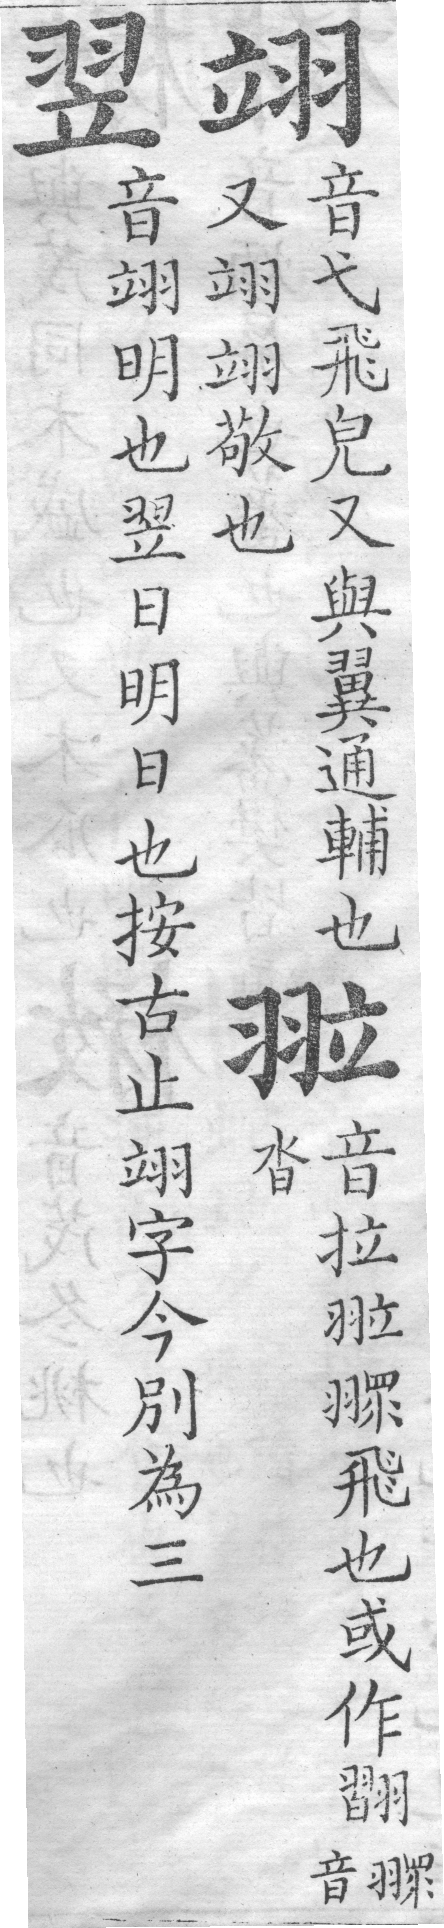 翊
音弋飛皃又與翼通輔也
又翊翊敬也
翋
音拉翋䎎飛也或作
䎎音
沓
翌
音翊明也翌日明日也按古止翊字今別為三